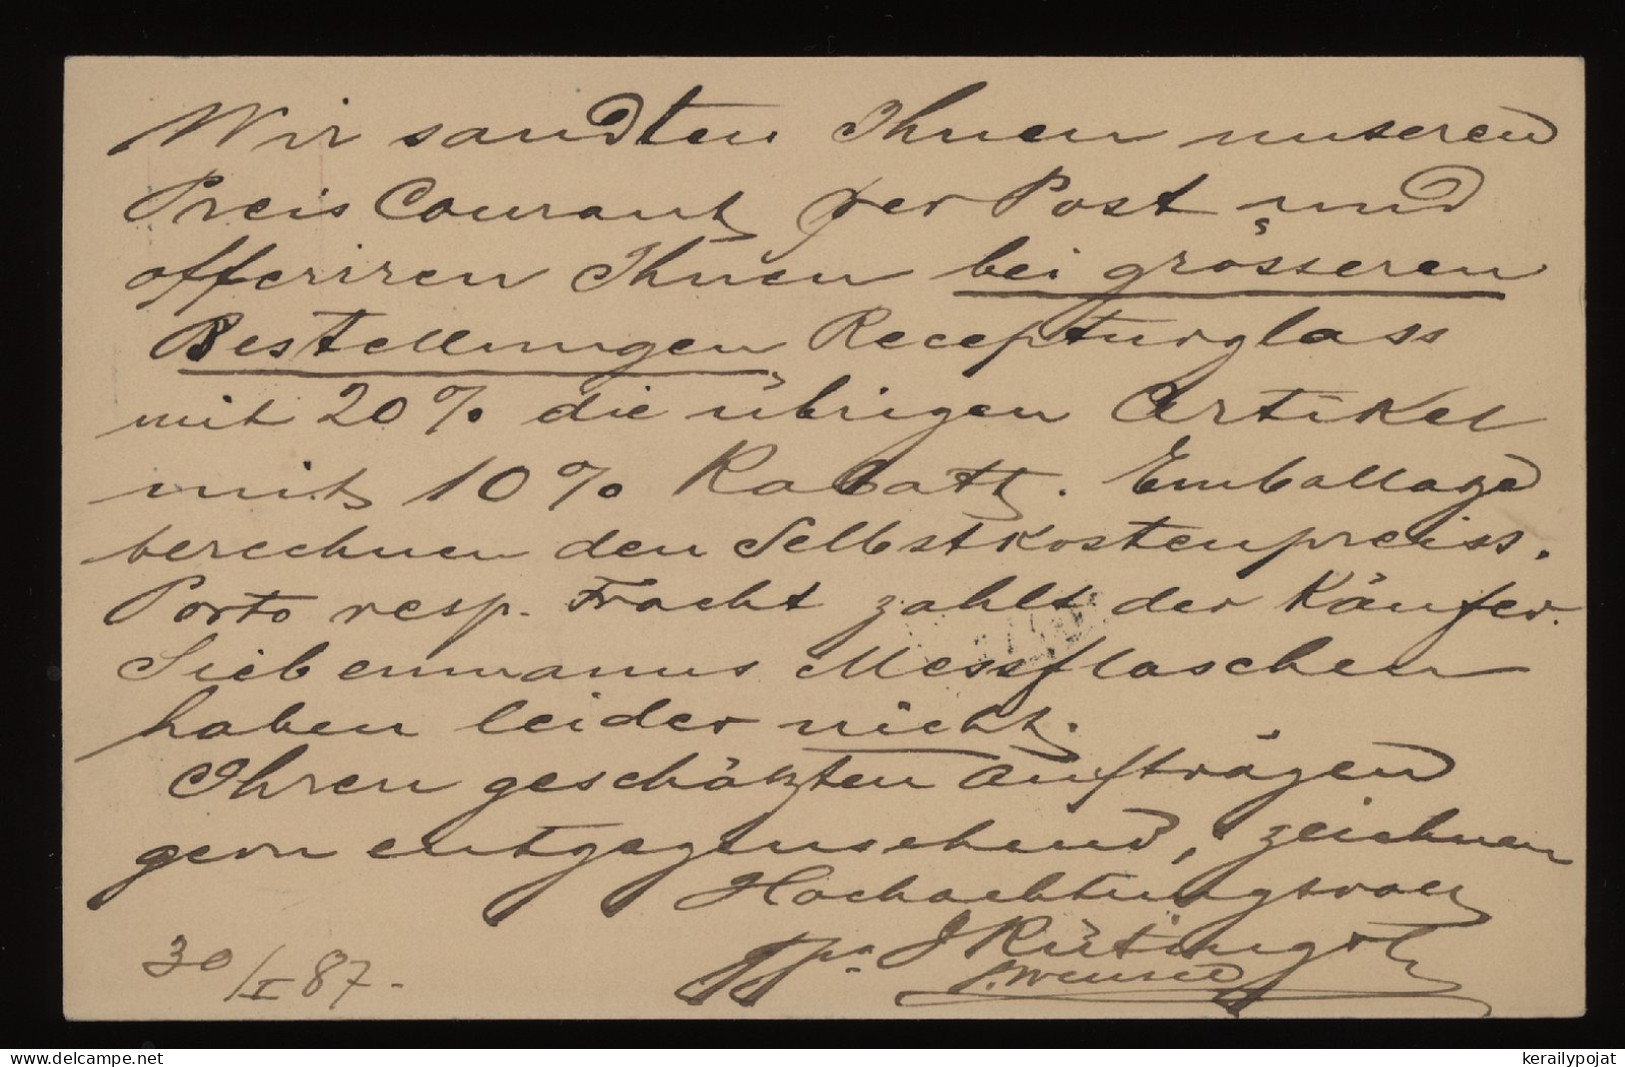 Wir sandten Ihnen unseren
Preis Courant per Post und
offeriren Ihnen bei grösseren
Bestellungen Recepturglass
mit 20% die übrigen Artikel
mit 10% Rabatt. Emballage
berechnen den Selbstkostenpreiss.
Porto resp. Fracht zahlt der Käufer.
Siebenmanns Messflaschen
haben leider nicht.
Ihren geschätzten Aufträgen
gern entgegensehend, zeichnen
Hochachtungsvoll
ppa J
30/I 87.
www.delcampe.net
kerailypojat